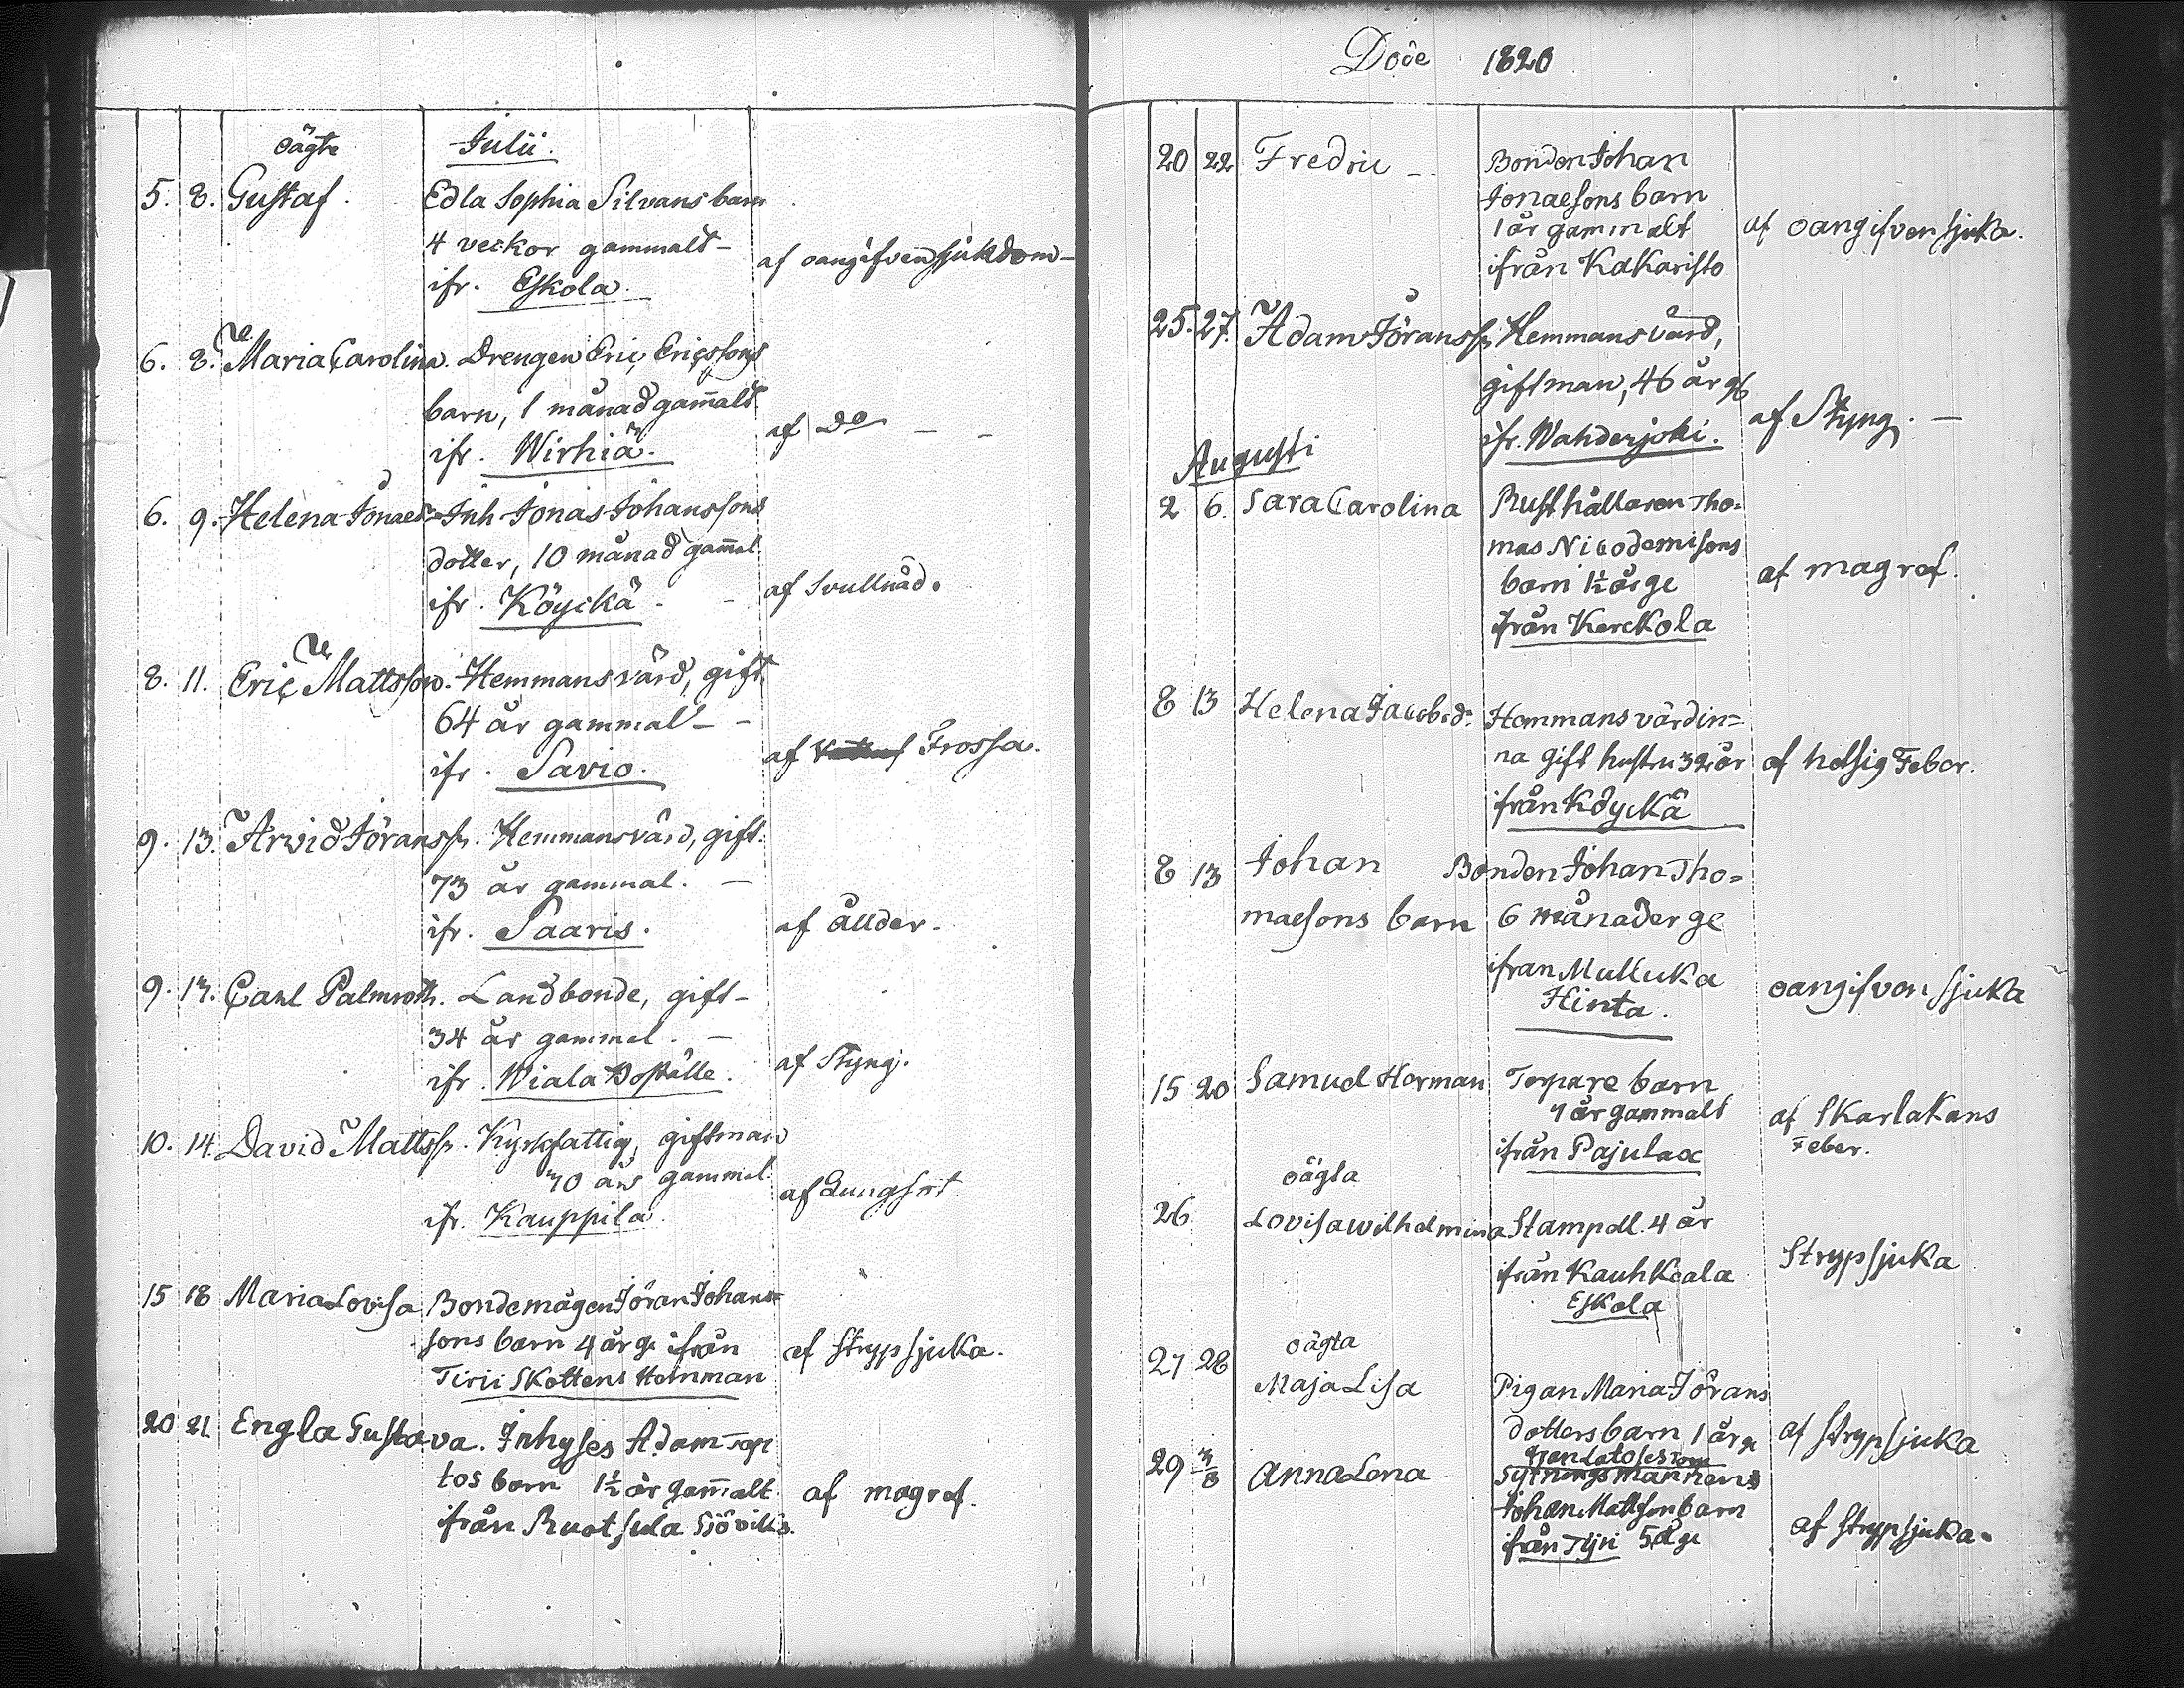 oägte Julii.
5. 8. Gustaf. Edla Sophia Silvans barn
4 veckor gammalt
ifr. Eskola. af oangifven sjukdom
6. 8. Maria Carolina. Drengen Eric Ericssons
barn, 1 månad gam̄alt
ifr. Wirhiä. af do
6. 9. Helena Jonaed:r Inh Jonas Johanssons
dotter, 10 månad gam̄al
ifr. Köyckä. af Svullnad.
8. 11. Eric Mattsson. Hemmansvärd, gift
64 år gammal
ifr. Savio. af Frossa.
9. 13. Arvid Jöranss. Hemmansvärd, gift.
73 år gammal.
ifr. Saaris. af ållder.
9. 13. Carl Palmroth. Landbonde, gift
34 år gammal.
ifr. Wiala Boställe. af Styng.
10. 14. David Mattss. Kyrkfattig, giftman
70 år gammal
ifr. Kauppila. af Lungsot
15 18 Maria Lovisa Bondemågen Jöran Johans=
sons barn 4 år ge ifrån
Tirii Skottens Hemman af Strypsjuka.
20 21 Engla Gustava. Inhyses Adam
tos barn 1½ år gam̄alt
ifrån Ruotsula Sjöviks. af magref.
Döde 1820
20 22 Fredric Bonden Johan
Jonaesons barn
1 år gammalt
ifrån Kakaristo af oangifven sjuka.
25. 27. Adam Jöranss Hemmansvärd,
giftman, 46 år gl
ifr. Wahderjoki. af Styng.
Augusti
2 6. Sara Carolina Rusthållaren Tho=
mas Nicodemisons
barn 1½ år ge
ifrån Kerckola af magref.
8 13 Helena Jacobsd:r Hemmans värdin=
na gift hustru 32 år
ifrån Köyckä af hetsig Feber.
8 13 Johan Bonden Johan Tho=
maesons barn 6 månader ge
ifran Mulluka
Hinta. oangifven sjuka
15 20 Samuel Herman Torpare barn
7 år gammalt
ifrån Pajulax af Skarlakans
Feber.
oägta
26 Lovisa Wilhelmina Stampdl. 4 år
ifrån Kauhkeala
Eskola Strypsjuka
oägta
27 28 Maja Lisa Pigan Maria Jörans
dotters barn 1 år ge af Strypsjuka
29 3/8 Anna Lena Sytningsmannens
Johan Mattson barn
ifrån Tijri 5 å ge af Strypsjuka.